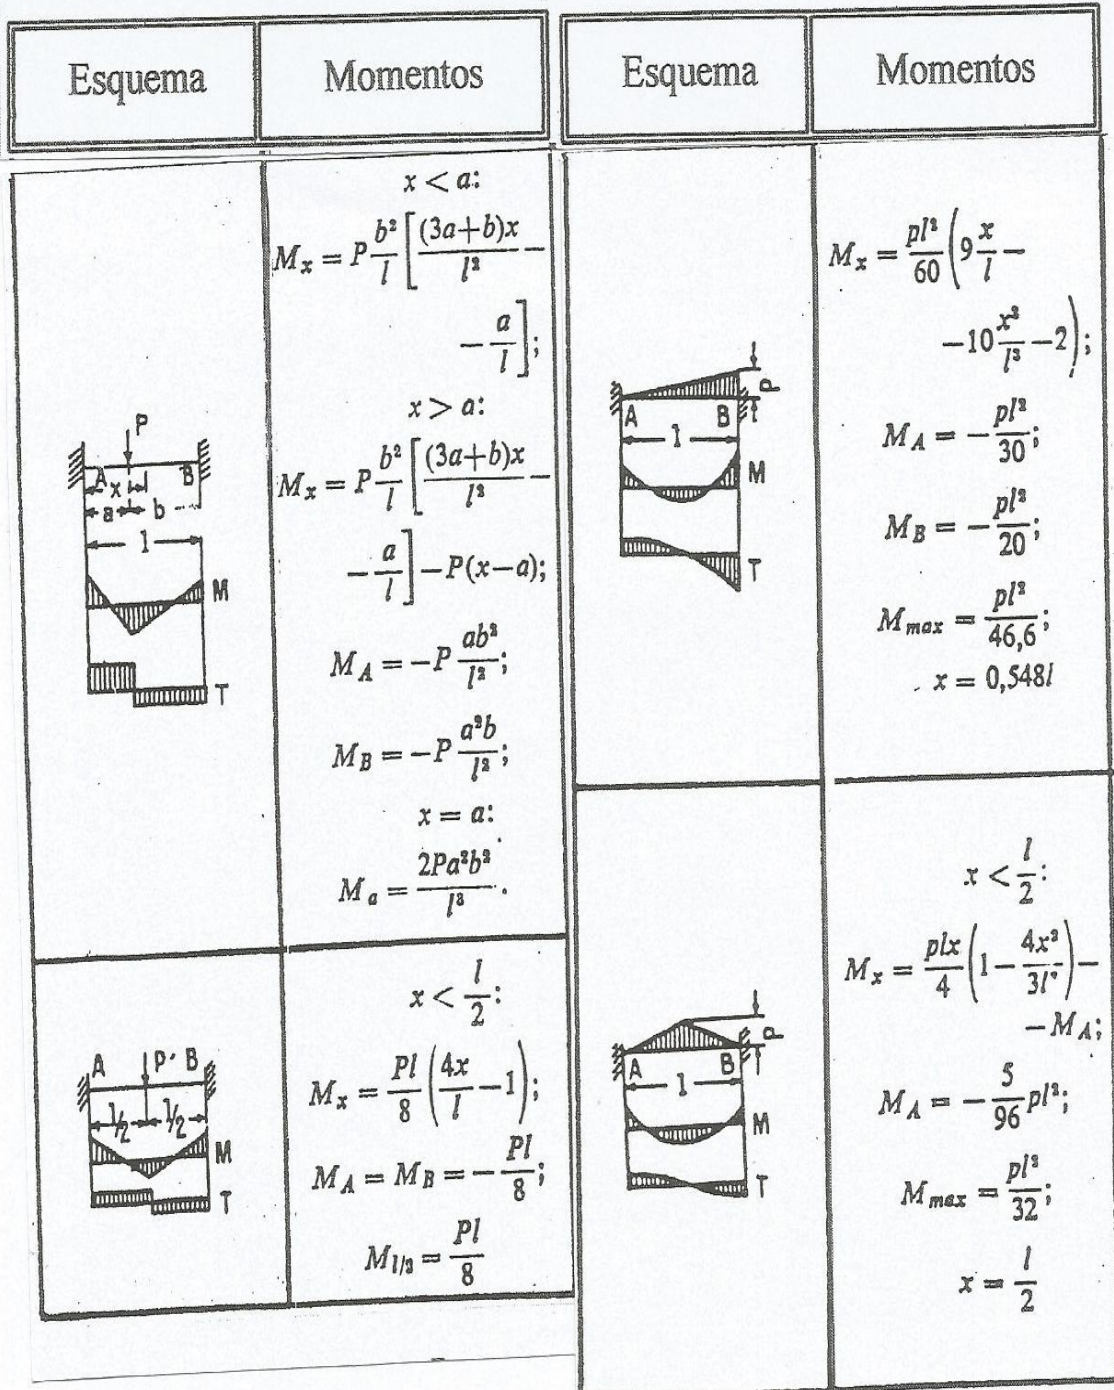 Esquema
Momentos
P
A
x
B
a
b
l
M
T
x < a:
M_x = P b²/l [ (3a+b)x/l² −
− a/l ];
x > a:
M_x = P b²/l [ (3a+b)x/l² −
− a/l ] − P(x−a);
M_A = −P ab²/l²;
M_B = −P a²b/l²;
x = a:
M_a = 2Pa²b²/l³.
A
P
B
l/2
l/2
M
T
x < l/2:
M_x = Pl/8 ( 4x/l − 1 );
M_A = M_B = − Pl/8;
M_l/2 = Pl/8
Esquema
Momentos
P
A
B
l
M
T
M_x = pl²/60 ( 9 x/l −
− 10 x³/l³ − 2 );
M_A = − pl²/30;
M_B = − pl²/20;
M_max = pl²/46,6;
x = 0,548l
P
A
B
l
M
T
x < l/2:
M_x = plx/4 ( 1 − 4x²/3l² ) −
− M_A;
M_A = − 5/96 pl²;
M_max = pl²/32;
x = l/2